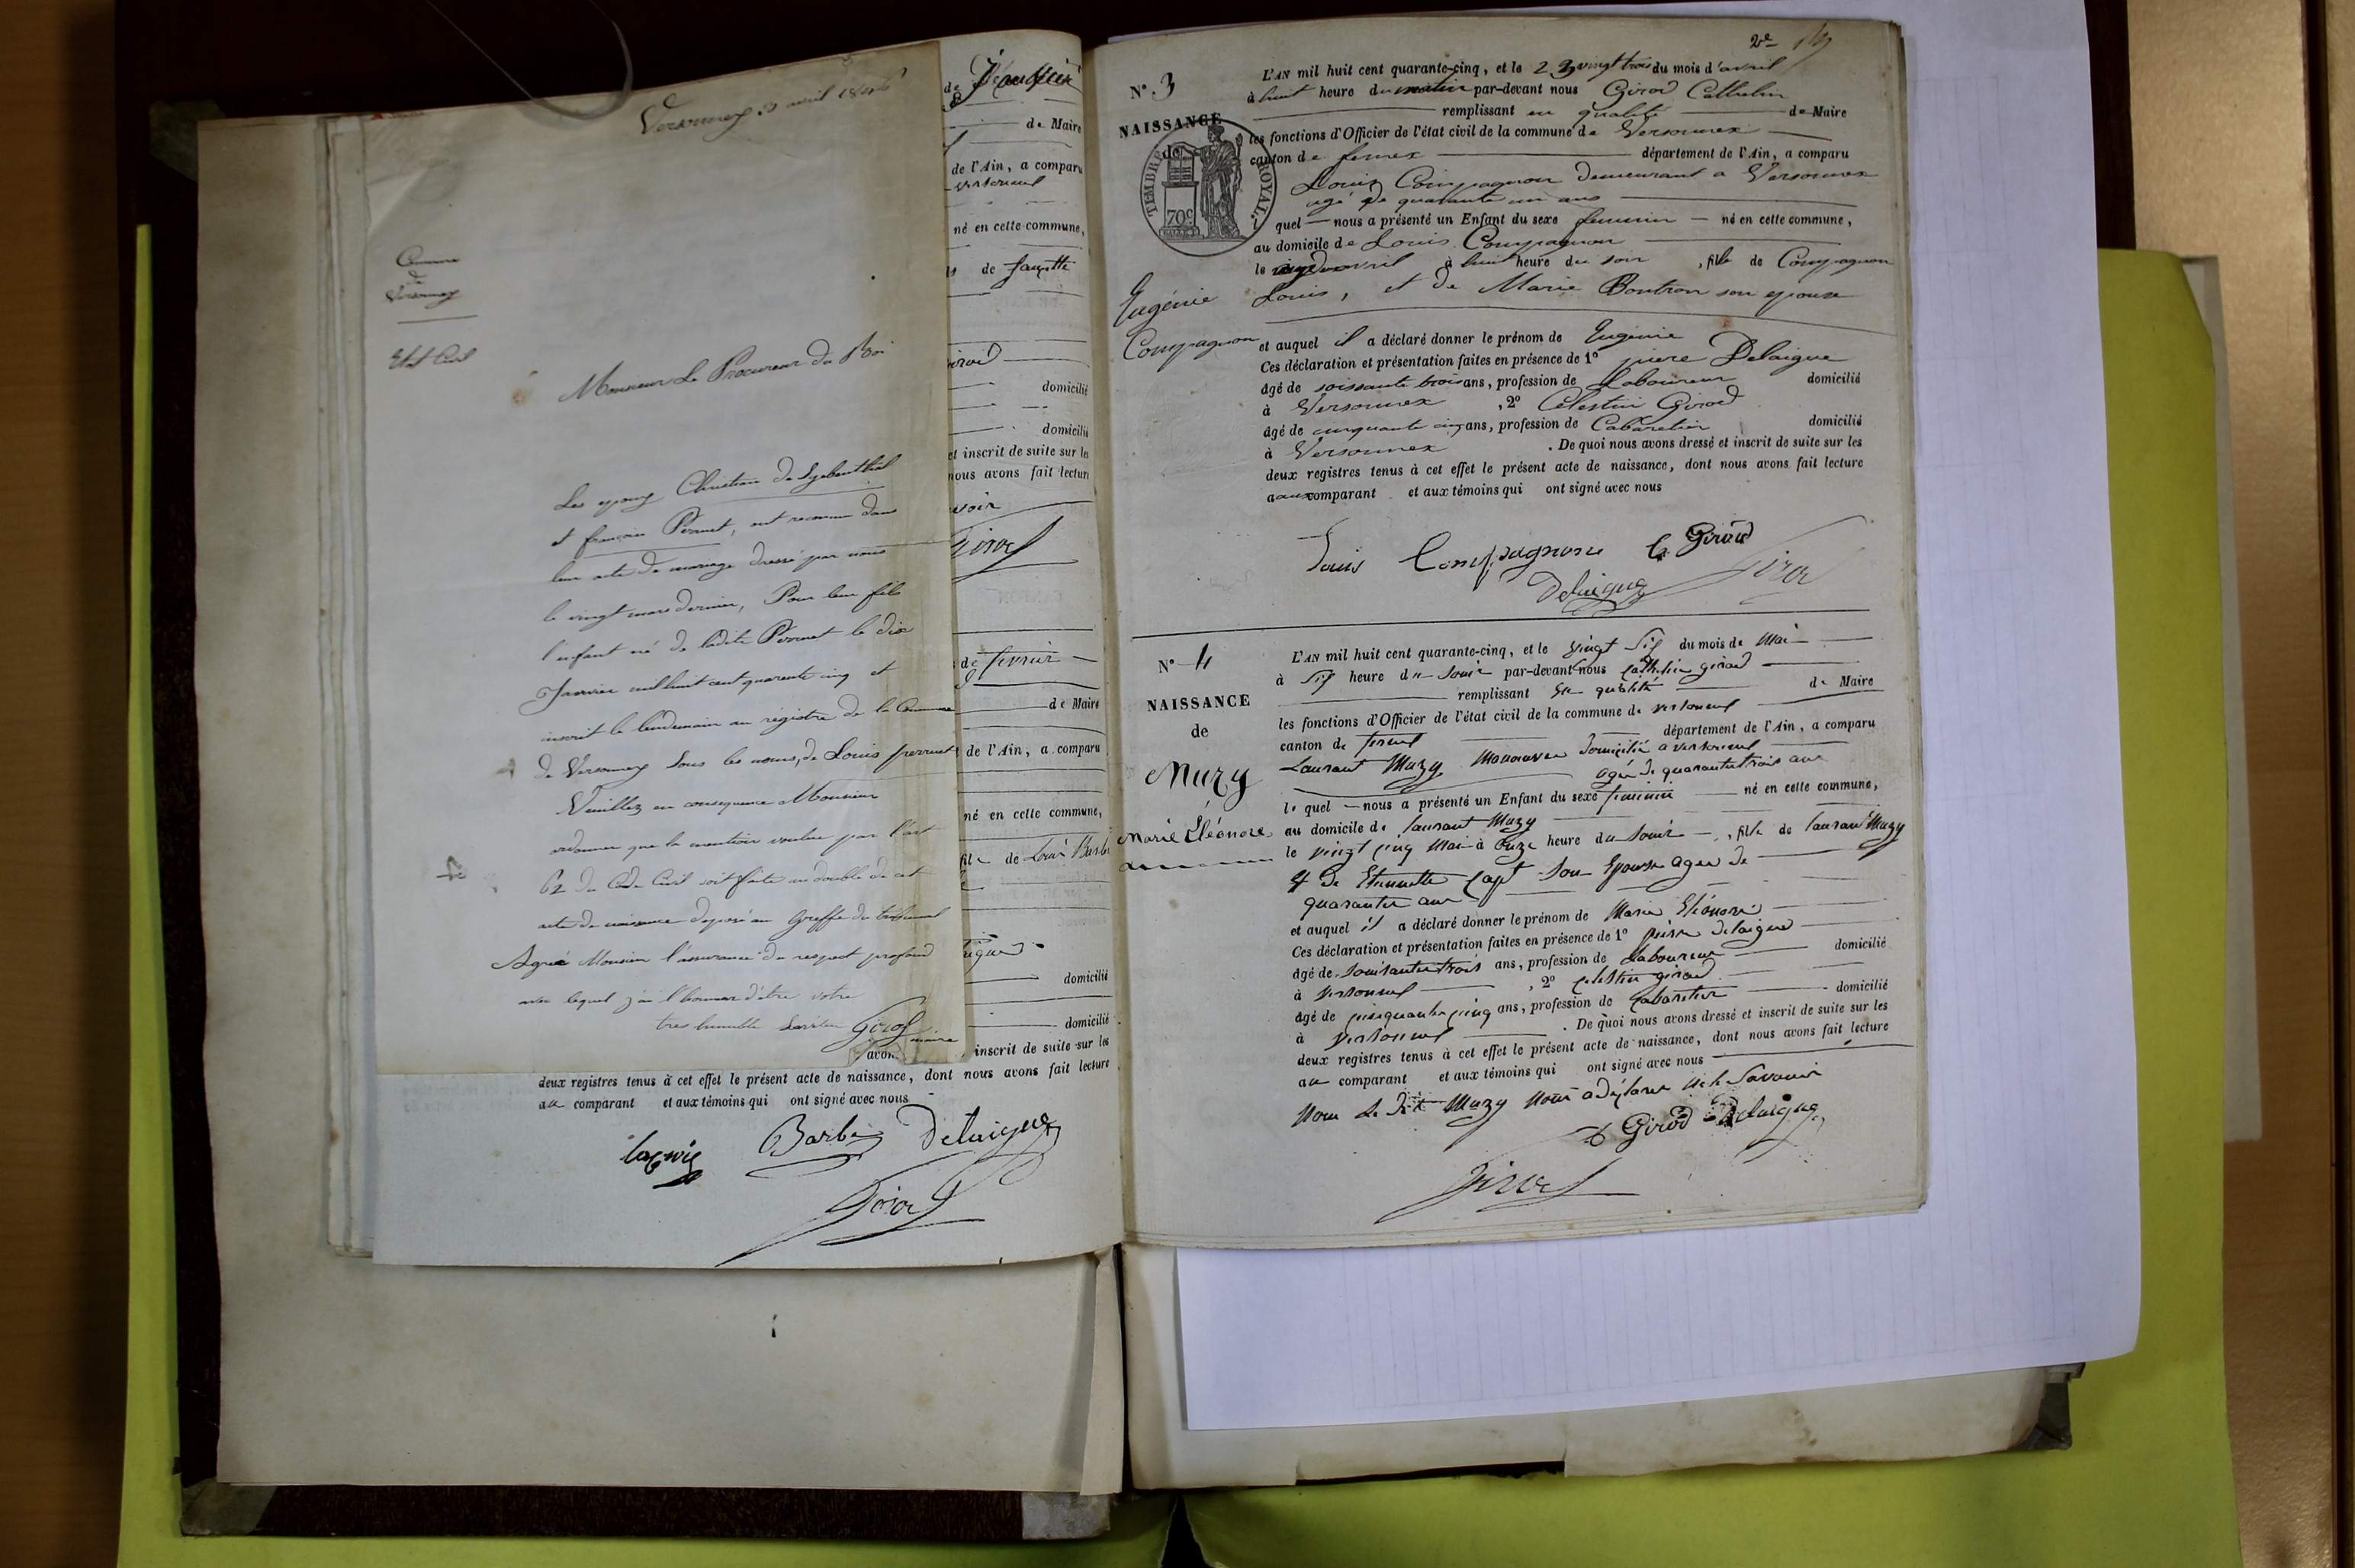 Versonnex avril 1846
Commune
de
Versonnex
Etat Civil
Monsieur Le Procureur du Roi
Les epoux Christian de Sybenthal
et françoise Perruet, ont reconnu dans
leur acte de mariage dressé par nous
le vingt mars dernier, Pour leur fils
l'enfant né de ladite Perruet le dix
Janvier mil huit cent quarente cinq et
inscrit le lendemain au régistre de la Commune
de Versonnex sous les noms de Louis perruet
Veuillez en consequence Monsieur
ordonner que la mention voulue par l'art
62 du Code Civil soit faite au double de cet
acte de naissance deposé au Greffe du tribunal
Agréé Monsieur l'assurance du respect profond
avec lequel j'ai l'honneur d'être votre
tres humble Serviteur Girod
maire
de Janvier
de Maire
de l'Ain, a comparu
versonnex
né en cette commune,
de
Girod
domicilié
domicilié
et inscrit de suite sur les
nous avons fait lecture
Girod
de fevrier
de Maire
de l'Ain, a comparu
né en cette commune,
fils de Louis Barbe
domicilié
domicilié
inscrit de suite sur les
deux registres tenus à cet effet le présent acte de naissance, dont nous avons fait lecture
au comparant et aux témoins qui ont signé avec nous
Barbe Delaigue
Girod
2e
N° 3
NAISSANCE
de
TIMBRE ROYAL
70c
Eugénie
Compagnon
L'AN mil huit cent quarante-cinq, et le 23 vingt trois du mois d'avril
à huit heure du matin par-devant nous Girod Cathelin
remplissant en qualité de Maire
les fonctions d'Officier de l'état civil de la commune de Versonnex
canton de fernex département de l'Ain, a comparu
Louis Compagnon demeurant a Versonnex
agé de quarante un ans
quel nous a présenté un Enfant du sexe feminin né en cette commune,
au domicile de Louis Compagnon
le avril à huit heure du soir, fille de Compagnon
Louis, et de Marie Bontron son epouse
et auquel il a déclaré donner le prénom de Eugénie
Ces déclaration et présentation faites en présence de 1° piere Delaigue
âgé de soissante trois ans, profession de Laboureur domicilié
à Versonnex, 2° Célestin Girod
âgé de cinquante cinq ans, profession de Cabaretier domicilié
à Versonnex. De quoi nous avons dressé et inscrit de suite sur les
deux registres tenus à cet effet le présent acte de naissance, dont nous avons fait lecture
aux comparant et aux témoins qui ont signé avec nous
Louis Compagnon C. Girod
Delaigue Girod
N° 4
NAISSANCE
de
Muzy
Marie Eléonore
L'AN mil huit cent quarante-cinq, et le vingt six du mois de Mai
à six heure du Soir par-devant nous Cathelin girod
remplissant En qualité de Maire
les fonctions d'Officier de l'état civil de la commune de versonnex
canton de fernex département de l'Ain, a comparu
Laurant Muzy Manouvre Domicilié a versonnex
agé de quarante trois ans
le quel nous a présenté un Enfant du sexe feminin né en cette commune,
au domicile de laurant Muzy
le vingt cinq Mai à Onze heure du Soir, fille de laurant Muzy
& de Etiennette Capt Son Epouse agée de
quarante ans
et auquel il a déclaré donner le prénom de Marie Eléonore
Ces déclaration et présentation faites en présence de 1° pierre delaigue
âgé de Soissante trois ans, profession de Laboureur domicilié
à versonnex, 2° celestin girod
âgé de cinquante cinq ans, profession de Cabaretier domicilié
à versonnex. De quoi nous avons dressé et inscrit de suite sur les
deux registres tenus à cet effet le présent acte de naissance, dont nous avons fait lecture
au comparant et aux témoins qui ont signé avec nous
Non Le Dit Muzy Nous a déclaré ne le Savoir
C Girod Delaigue
Girod